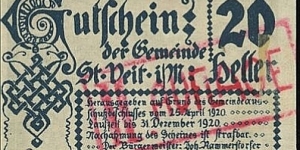 Gutschein 20
der Gemeinde
St. Veit i/M. Heller
Herausgegeben auf Grund des Gemeindeaus-
schußbeschlusses vom 25. April 1920.
Laufzeit bis 31. Dezember 1920.
Nachahmung des Scheines ist strafbar.
Der Bürgermeister: Joh. Rammerstorfer